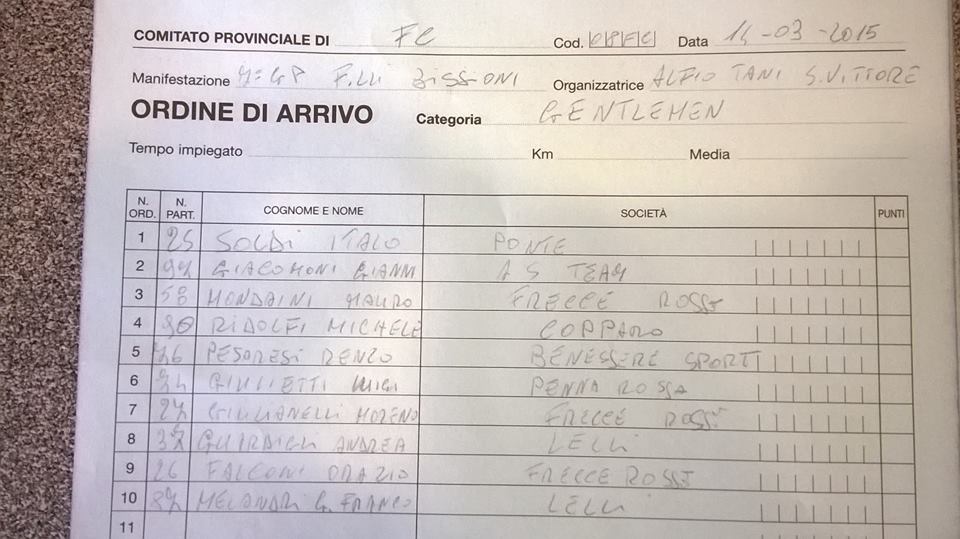 COMITATO PROVINCIALE DI FC Cod. 08FC Data 14-03-2015
Manifestazione F.lli BISSIONI Organizzatrice ALFIO TANI S.VITTORE
ORDINE DI ARRIVO Categoria GENTLEMEN
Tempo impiegato Km Media
N. ORD. N. PART. COGNOME E NOME SOCIETÀ PUNTI
1 25 SOLDI ITALO PONTE
2 GIACOMONI GIANNI A S TEAM
3 58 MONDAINI MAURO FRECCE ROSSE
4 90 RIDOLFI MICHELE COPPARO
5 PESARESI RENZO BENESSERE SPORT
6 GIULIETTI LUIGI PENNA ROSSA
7 27 GIULIANELLI MORENO FRECCE ROSSE
8 ANDREA LELLI
9 26 FALCONI ORAZIO FRECCE ROSSE
10 MELANDRI G. FRANCO LELLI
11